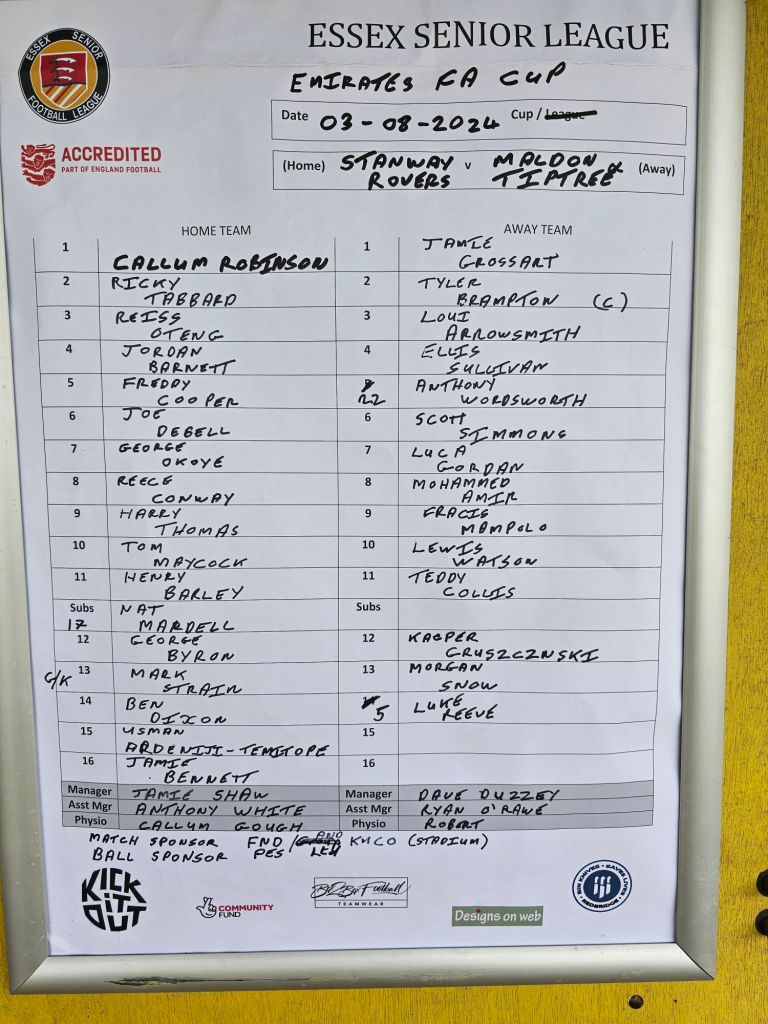 ESSEX SENIOR LEAGUE
ESSEX SENIOR
FOOTBALL LEAGUE
EMIRATES FA CUP
Date 03-08-2024 Cup / League
ACCREDITED
PART OF ENGLAND FOOTBALL
(Home) STANWAY ROVERS v MALDON & TIPTREE (Away)
HOME TEAM AWAY TEAM
1 CALLUM ROBINSON 1 JAMIE GROSSART
2 RICKY TABBARD 2 TYLER BRAMPTON (C)
3 REISS OTENG 3 LOUI ARROWSMITH
4 JORDAN BARNETT 4 ELLIS SULLIVAN
5 FREDDY COOPER 22 ANTHONY WORDSWORTH
6 JOE DEBELL 6 SCOTT SIMMONS
7 GEORGE OKOYE 7 LUCA GORDAN
8 REECE CONWAY 8 MOHAMMED AMIR
9 HARRY THOMAS 9 FRACIS MAMPOLO
10 TOM MAYCOCK 10 LEWIS WATSON
11 HENRY BARLEY 11 TEDDY COLLIS
Subs 17 NAT MARDELL Subs
12 GEORGE BYRON 12 KACPER GRUSZCZNSKI
G/K 13 MARK STRAIN 13 MORGAN SNOW
14 BEN DIXON 5 LUKE REEVE
15 USMAN ARDENIJI-TEMITOPE 15
16 JAMIE BENNETT 16
Manager JAMIE SHAW Manager DAVE DUZZEY
Asst Mgr ANTHONY WHITE Asst Mgr RYAN O'RAWE
Physio CALLUM GOUGH Physio ROBERT
MATCH SPONSOR FND / KMCO (STADIUM)
BALL SPONSOR PES
KICK IT OUT
COMMUNITY FUND
TEAMWEAR
Designs on web
BIN KNIVES - SAVES LIVES
REDBRIDGE